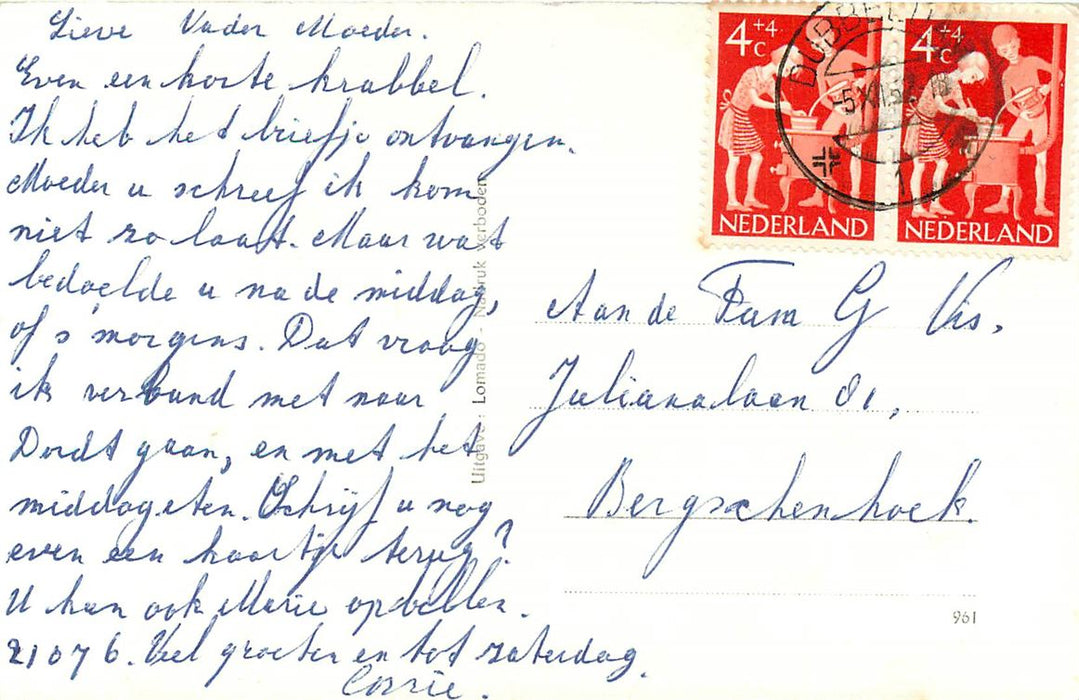 Lieve Vader Moeder.
Even een korte krabbel.
Ik heb het briefje ontvangen.
Moeder u schreef ik kom
niet zo laat. Maar wat
bedoelde u na de middag,
of s'morgens. Dat vraag
ik verband met naar
Dordt gaan, en met het
middageten. Schrijf u nog
even een kaartje terug?
U kan ook Marie opbellen.
21076. Veel groeten en tot zaterdag.
Corrie.
Uitgave: Lomado - Nadruk verboden
4+4
c
NEDERLAND
4+4
c
NEDERLAND
-5 XI
1
Aan de Fam G Vis.
Julianalaan 81,
Bergschenhoek.
961